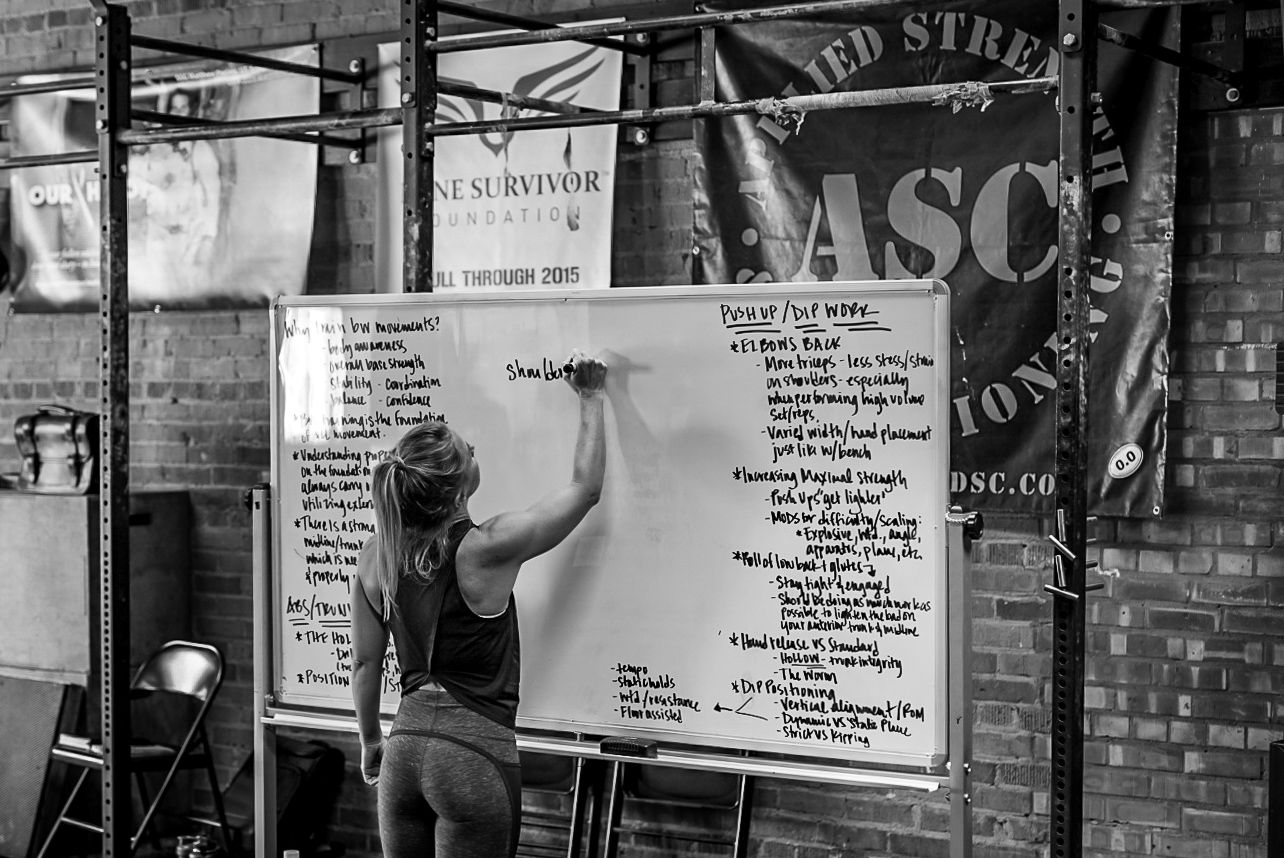 OUR
NE SURVIVOR
OUNDATION
ULL THROUGH 2015
LIED STREN TH
ASC
IONING
DSC.CO
0.0
Why train bw movements?
- body awareness
overall base strength
stability - coordination
balance - confidence
is the foundation
of all movement.
*Understanding prop
on the foundation
always carry
utilizing exter
*There is a strong
midline/trunk
which is ne
& properly
ABS/TRUN
*THE HOL
*POSITION
shoulder
- tempo
- static holds
- wtd/resistance
- Floor assisted
PUSH UP/DIP WORK
*ELBOWS BACK
- More triceps - less stess/strain
on shoulders - especially
when performing high volume
set/reps.
- Varied width/hand placement
just like w/bench
*Increasing Maximal strength
- Push ups "get lighter"
- MODs for difficulty/scaling:
*Explosive, wtd., angle,
apparatus, plane, etc.
*Roll of low back + glutes
- Stay tight & engaged
- Should be doing as much work as
possible to lighten the load on
your anterior trunk & midline
*Hand release vs Standard
- Hollow - trunk integrity
- The Worm
*DIP Positioning
- Vertical alignment/ROM
- Dynamic vs Static Plane
- Strict vs Kipping